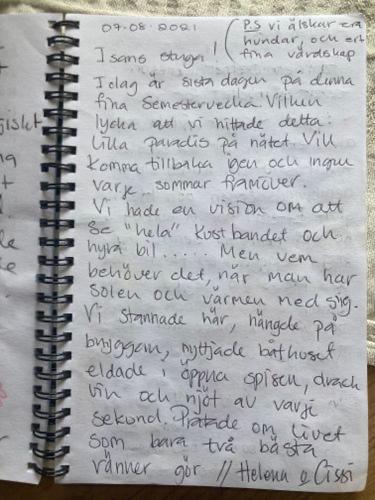 07.08.2021
P.S vi älskar era
hundar, och ert
fina värdskap
I sans stuga!
Idag är sista dagen på denna
fina Semestervecka. Vilken
lycka att vi hittade detta
lilla paradis på nätet. Vill
komma tillbaka igen och ingen
varje sommar framöver.
Vi hade en vision om att
se "hela" Kustbandet och
hyra bil..... Men vem
behöver det, när man har
solen och värmen med sig.
Vi stannade här, hängde på
bryggan, nyttjade båthuset
eldade i öppna spisen, drack
vin och njöt av varje
sekund. Pratade om livet
som bara två bästa
vänner gör // Helena & Cissi